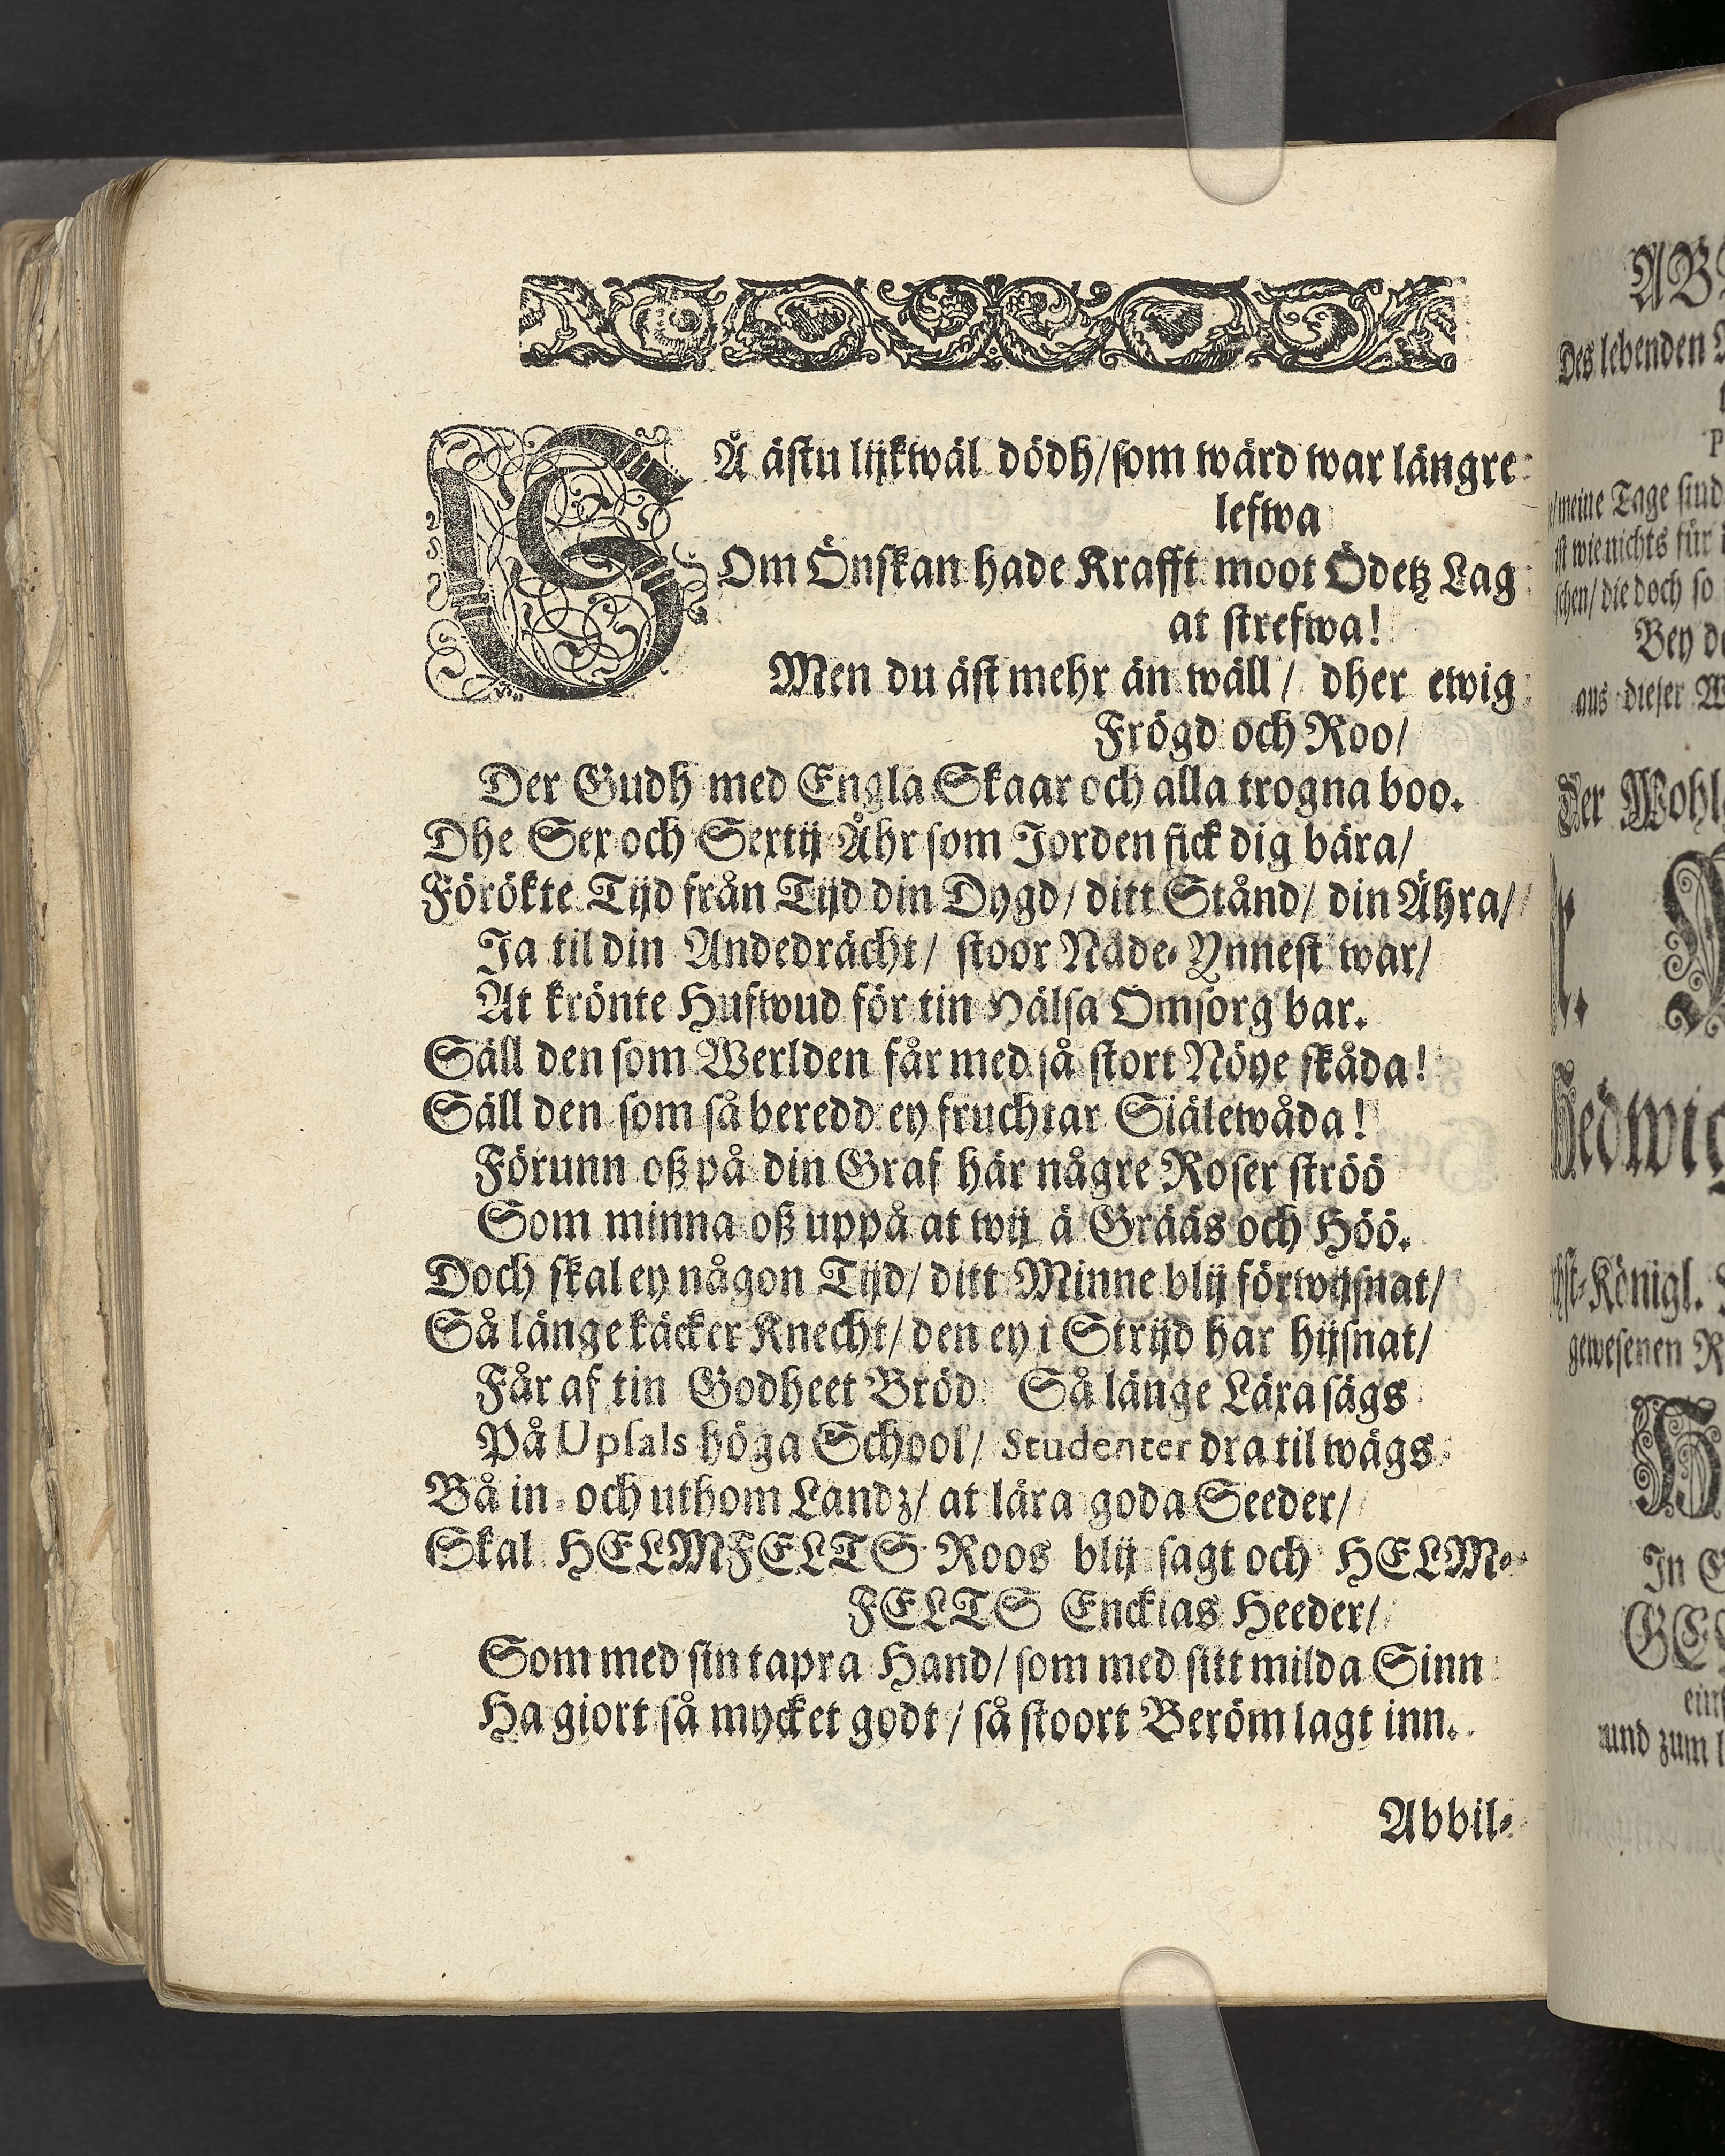 SÅ ästu lijkwäl dödh/som wärd war längre
lefwa
Om Önskan hade Krafft moot Ödetz Lag
at strefwa!
Men du äst mehr än wäll/ dher ewig
Frögd och Roo/
Der Gudh med Engla Skaar och alla trogna boo.
Dhe Sex och Sextij Åhr som Jorden fick dig bära/
Förökte Tijd från Tijd din Dygd/ ditt Stånd/ din Ähra/
Ja til din Andedrächt/ stoor Nåde-Ynnest war/
At krönte Hufwud för tin Hälsa Omsorg bar.
Säll den som Werlden får med så stort Nöye skåda!
Säll den som så beredd ey fruchtar Siälewåda!
Förunn oß på din Graf här någre Roser ströö
Som minna oß uppå at wij ä Grääs och Höö.
Doch skal ey någon Tijd/ ditt Minne blij förwijsnat/
Så länge käcker Knecht/ den ey i Strijd har hijsnat/
Får af tin Godheet Bröd Så länge Lära sägs
På Upsals höga School/ Studenter dra til wägs
Bå in- och uthom Landz/ at lära goda Seeder/
Skal HELMFELTS Roos blij sagt och HELM-
FELTS Enckias Heeder/
Som med sin tapra Hand/ som med sitt milda Sinn
Ha giort så mycket godt/ så stoort Beröm lagt inn.
Abbil-
Des lebenden
meine Tage sind
ist wie nichts für
schen/ die doch so
Bey
aus dieser
Der Wohl
Hedwig
Königl.
gewesenen
In
und zum